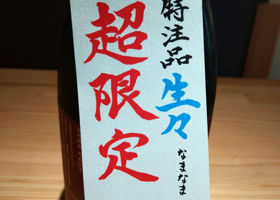 特注品 生々
なまなま
超限定